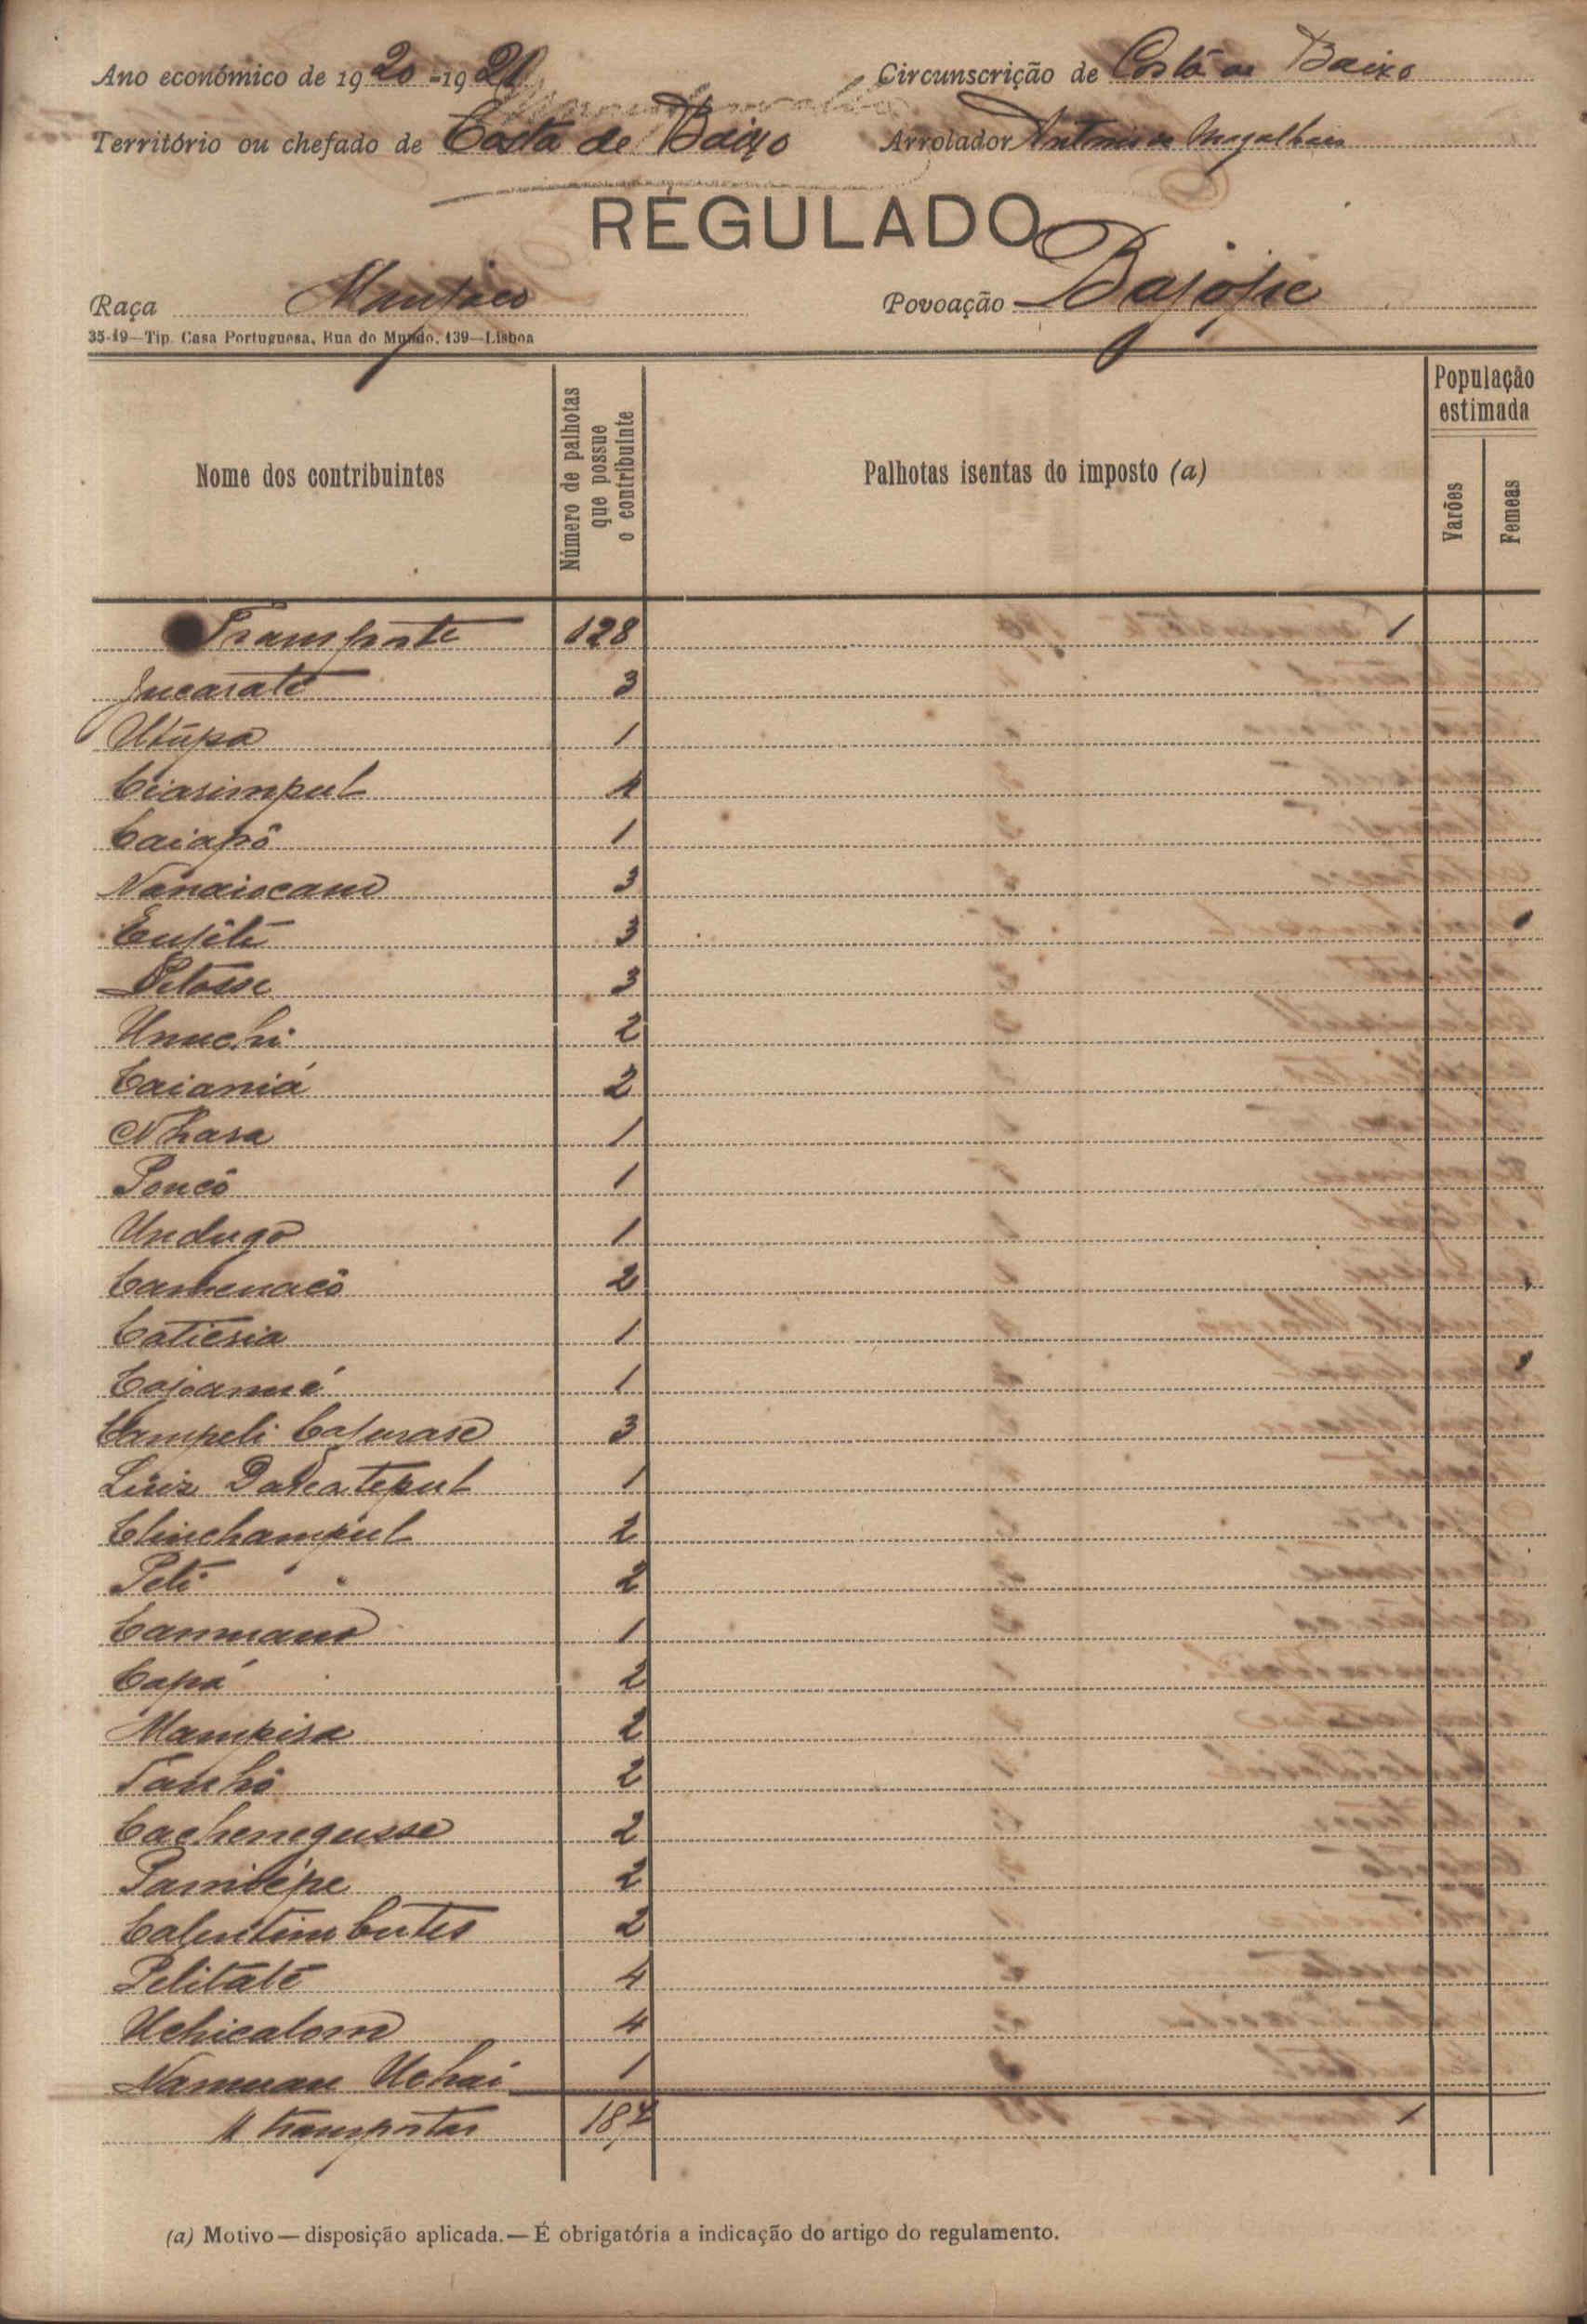 Ano económico de 1920-1921 Circunscrição de Costa de Baixo
Território ou chefado de Costa de Baixo Arrolador Antonio de Magalhães
RÉGULADO
Raça Manjaco Povoação Bajope
35-19—Tip. Casa Portuguesa, Rua do Mundo, 139—Lisboa
Nome dos contribuintes Número de palhotas que possue o contribuinte Palhotas isentas do imposto (a) População estimada Varões Femeas
Transporte 128 1
Jucaraté 3
Utúpa 1
Ciasimpul 1
Caiapô 1
Nanaiocam 3
3
Petosse 3
Unuchi 2
Caianiá 2
Nhara 1
Poncô 1
Undugo 1
Camenacô 2
Catiesia 1
Cajoamé 1
Campeli Cajurase 3
Luiz Dacatepul 1
Clinchampul 2
Peti 2
Canmano 1
Capá 2
Mampisa 2
Tanhô 2
Cachenegusse 2
Pamitépe 2
Calentim Cutes 2
Pelitaté 4
Uchicalom 4
Namuan Uchai 1
A transportar 184 1
(a) Motivo—disposição aplicada.—É obrigatória a indicação do artigo do regulamento.